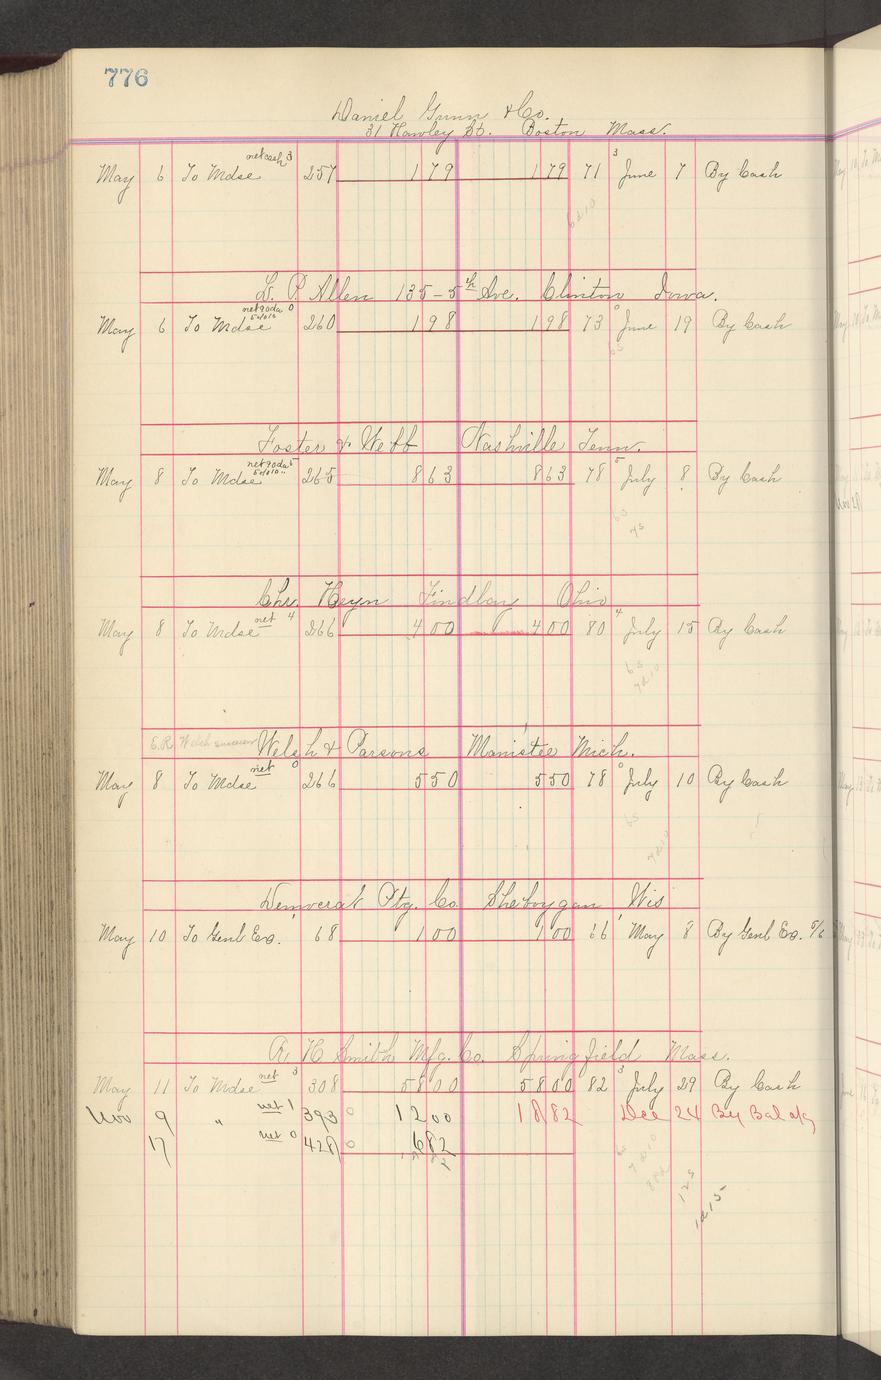 776
Daniel Gunn & Co.
31 Hawley St. Boston Mass.
May 6 To Mdse net cash 3 257 1 79 1 79 71 3 June 7 By Cash
6 d 10
L. P. Allen 135-5th Ave. Clinton Iowa.
May 6 To Mdse net 90 da 5 d 10 0 260 1 98 1 98 73 0 June 19 By Cash
6 s
Foster & Webb Nashville Tenn.
May 8 To Mdse net 90 da 5 d 10 5 265 8 63 8 63 78 5 July 8 By Cash
6 s
7 s
Chr. Heyn Findlay Ohio
May 8 To Mdse net 4 266 4 00 4 00 80 4 July 15 By Cash
6 s
7 d 10
E.R. Welsh successor Welsh & Parsons Manistee Mich.
May 8 To Mdse net 0 266 5 50 5 50 78 0 July 10 By Cash
6 s
7 d 10
Democrat Ptg. Co. Sheboygan Wis
May 10 To Genl Ex. 68 1 00 1 00 66 May 8 By Genl Ex. 5/6
A. H Smith Mfg. Co. Springfield Mass.
May 11 To Mdse net 3 308 58 00 58 00 82 3 July 29 By Cash
Nov 9 " net 1 393 0 12 00 18 82 Dec 24 By Bal a/c
17 net 0 428 0 6 82
6 s
7 d 10
8 s d
12 s
1 d 15